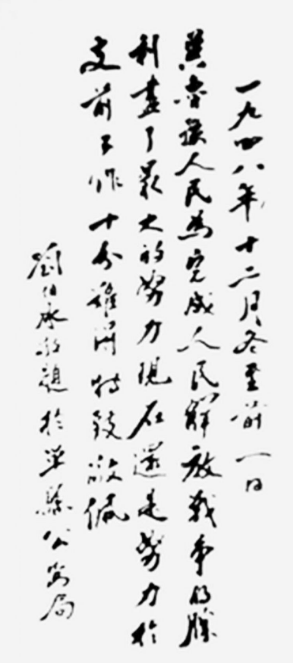 一九四八年十二月冬至前一日
冀鲁豫人民为完成人民解放战争的胜
利尽了最大的努力现在还是努力于
支前工作十分难得特致敬佩
劉伯承敬題於单縣公安局